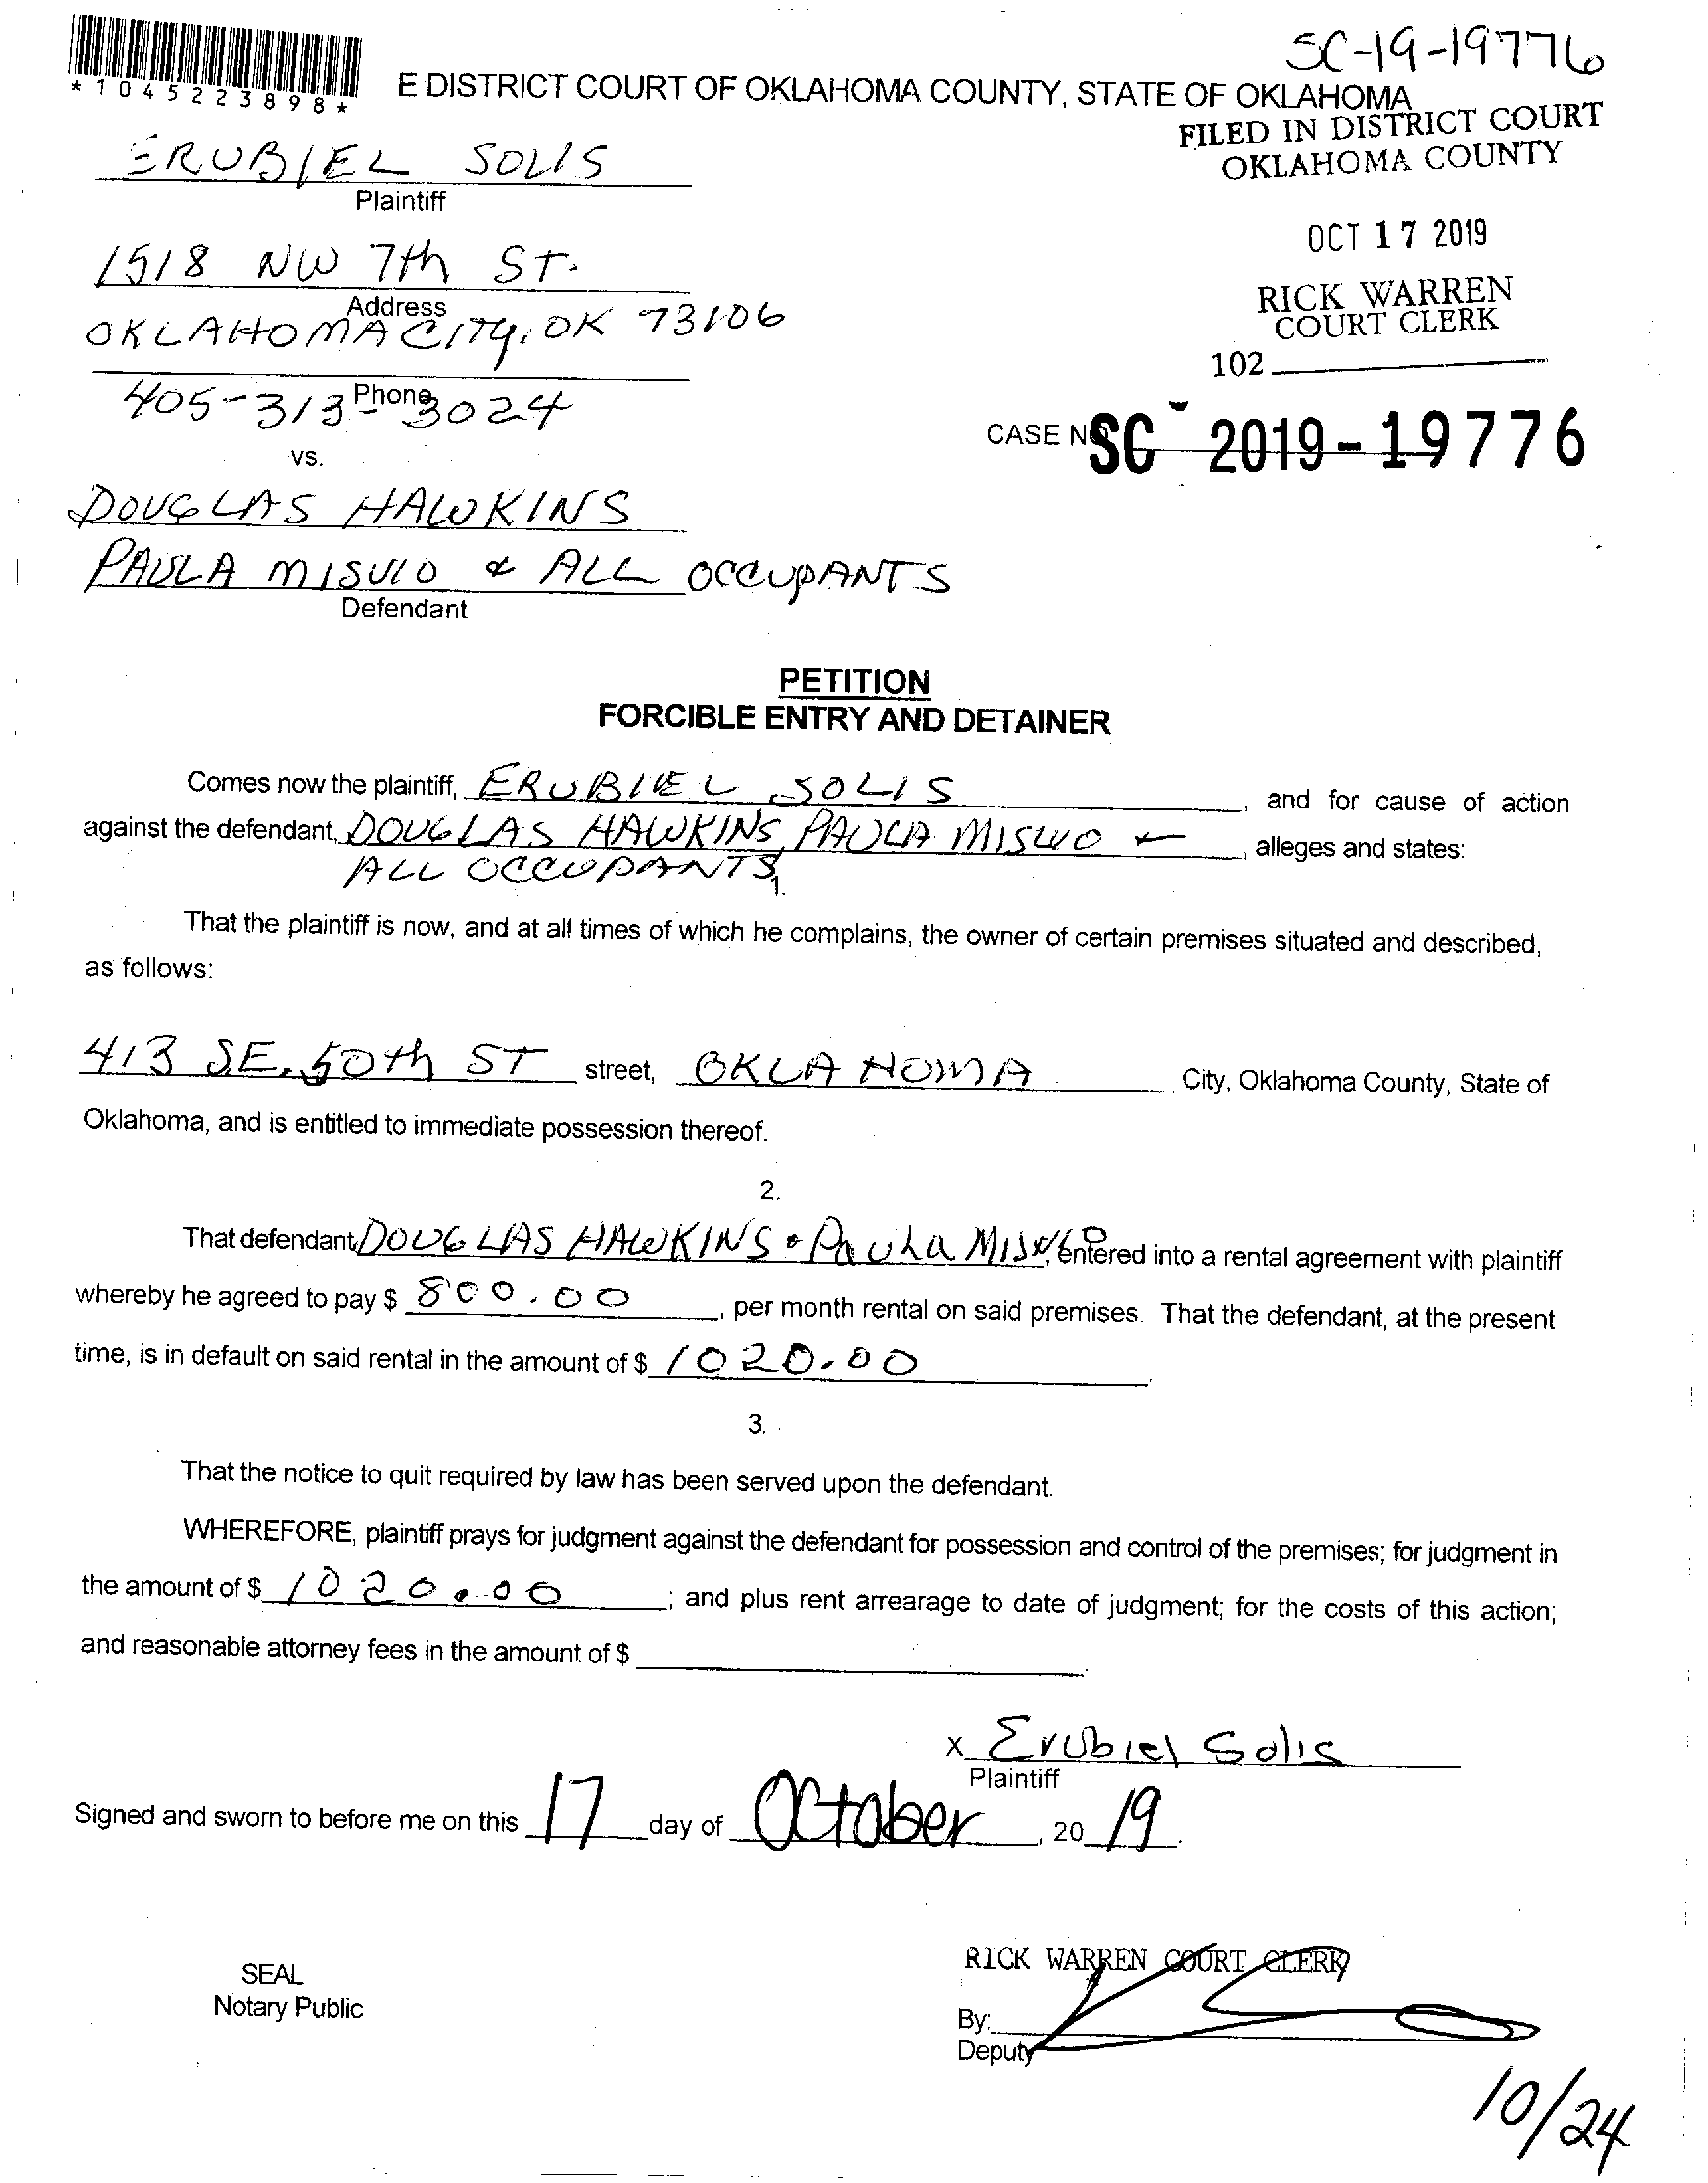 SC-19-19776
*1045223898*
E DISTRICT COURT OF OKLAHOMA COUNTY, STATE OF OKLAHOMA
FILED IN DISTRICT COURT
OKLAHOMA COUNTY
ERUBIEL SOLIS
Plaintiff
OCT 17 2019
1518 NW 7th ST.
Address
RICK WARREN
COURT CLERK
OKLAHOMA CITY, OK 73106
102
Phone
405-313-3024
CASE NO. SC - 2019-19776
vs.
DOUGLAS HAWKINS
PAULA & ALL OCCUPANTS
Defendant
PETITION
FORCIBLE ENTRY AND DETAINER
Comes now the plaintiff, ERUBIEL SOLIS, and for cause of action
against the defendant, DOUGLAS HAWKINS, PAULA, alleges and states:
ALL OCCUPANTS
1.
That the plaintiff is now, and at all times of which he complains, the owner of certain premises situated and described,
as follows:
413 S.E. 50th ST street, OKLAHOMA City, Oklahoma County, State of
Oklahoma, and is entitled to immediate possession thereof.
2.
That defendant, DOUGLAS HAWKINS Paula, entered into a rental agreement with plaintiff
whereby he agreed to pay $ 800.00, per month rental on said premises. That the defendant, at the present
time, is in default on said rental in the amount of $ 1020.00.
3.
That the notice to quit required by law has been served upon the defendant.
WHEREFORE, plaintiff prays for judgment against the defendant for possession and control of the premises; for judgment in
the amount of $ 1020.00; and plus rent arrearage to date of judgment; for the costs of this action;
and reasonable attorney fees in the amount of $
x Erubiel Solis
Plaintiff
Signed and sworn to before me on this 17 day of October, 20 19.
SEAL
Notary Public
RICK WARREN COURT CLERK
By:
Deputy
10/24